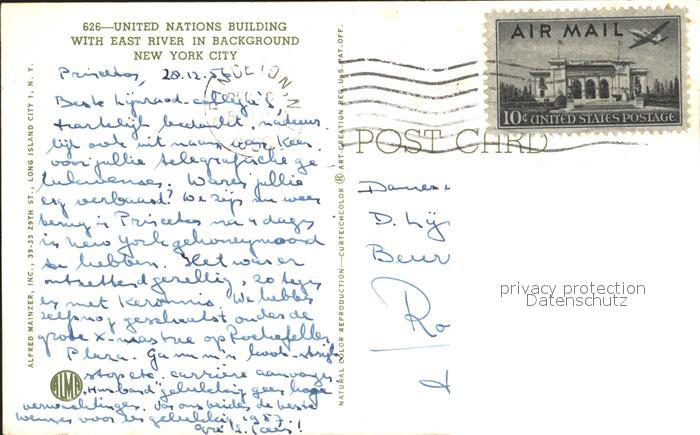 626—UNITED NATIONS BUILDING
WITH EAST RIVER IN BACKGROUND
NEW YORK CITY
Princeton, 20.12.56
Beste Lijnraad-collega's,
Hartelijk bedankt, natuur-
lijk ook uit naam van Kees
voor jullie telegrafische ge
lukwensen. Waren jullie
erg verbaasd? We zijn nu weer
terug in Princeton na 4 dagen
in New York gehoneymoond
te hebben. Het was er
ontzettend gezellig, zo tegen
en met Kerstmis. We hebben
zelfs nog geschaatst onder de
grote X-mas tree op Rockefeller
Plaza. Ga nu m'n kook-strijk-
stop etc. carrière aanvangen.
"Husband" gelukkig geen hoge
verwachtingen. Van ons beiden de beste
wensen voor een gelukkig 1957!
Kees!
ALFRED MAINZER, INC., 39-33 29TH ST., LONG ISLAND CITY 1, N. Y.
ALMA
NATURAL COLOR REPRODUCTION—CURTEICHCOLOR ® ART-CREATION REG. U.S. PAT. OFF.
POST CARD
AIR MAIL
10¢ UNITED STATES POSTAGE
Dames
D. Lij
Beur
Ro
privacy protection
Datenschutz